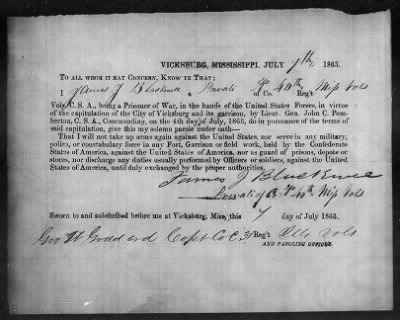 VICKSBURG, MISSISSIPPI, JULY 7th, 1863.
TO ALL WHOM IT MAY CONCERN, KNOW YE THAT:
I James J a Private of Co. F 40th Reg't Miss Vols
Vols, C. S. A., being a Prisoner of War, in the hands of the United States Forces, in virtue
of the capitulation of the City of Vicksburg and its garrison, by Lieut. Gen. John C. Pem-
berton, C. S. A., Commanding, on the 4th day of July, 1863, do in pursuance of the terms of
said capitulation, give this my solemn parole under oath—
That I will not take up arms again against the United States, nor serve in any military,
police, or constabulary force in any Fort, Garrison or field work, held by the Confederate
States of America, against the United States of America, nor as guard of prisons, depots or
stores, nor discharge any duties usually performed by Officers or soldiers, against the United
States of America, until duly exchanged by the proper authorities.
James J
Private of Co F 40th Miss Vols
Sworn to and subscribed before me at Vicksburg, Miss, this 7 day of July 1863.
Geo W Goddard Capt Co C 31 Reg't Ills Vols
AND PAROLING OFFICER.